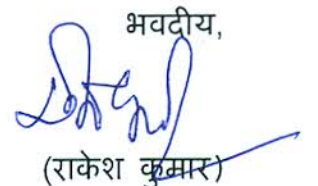 भवदीय,
(राकेश कुमार)